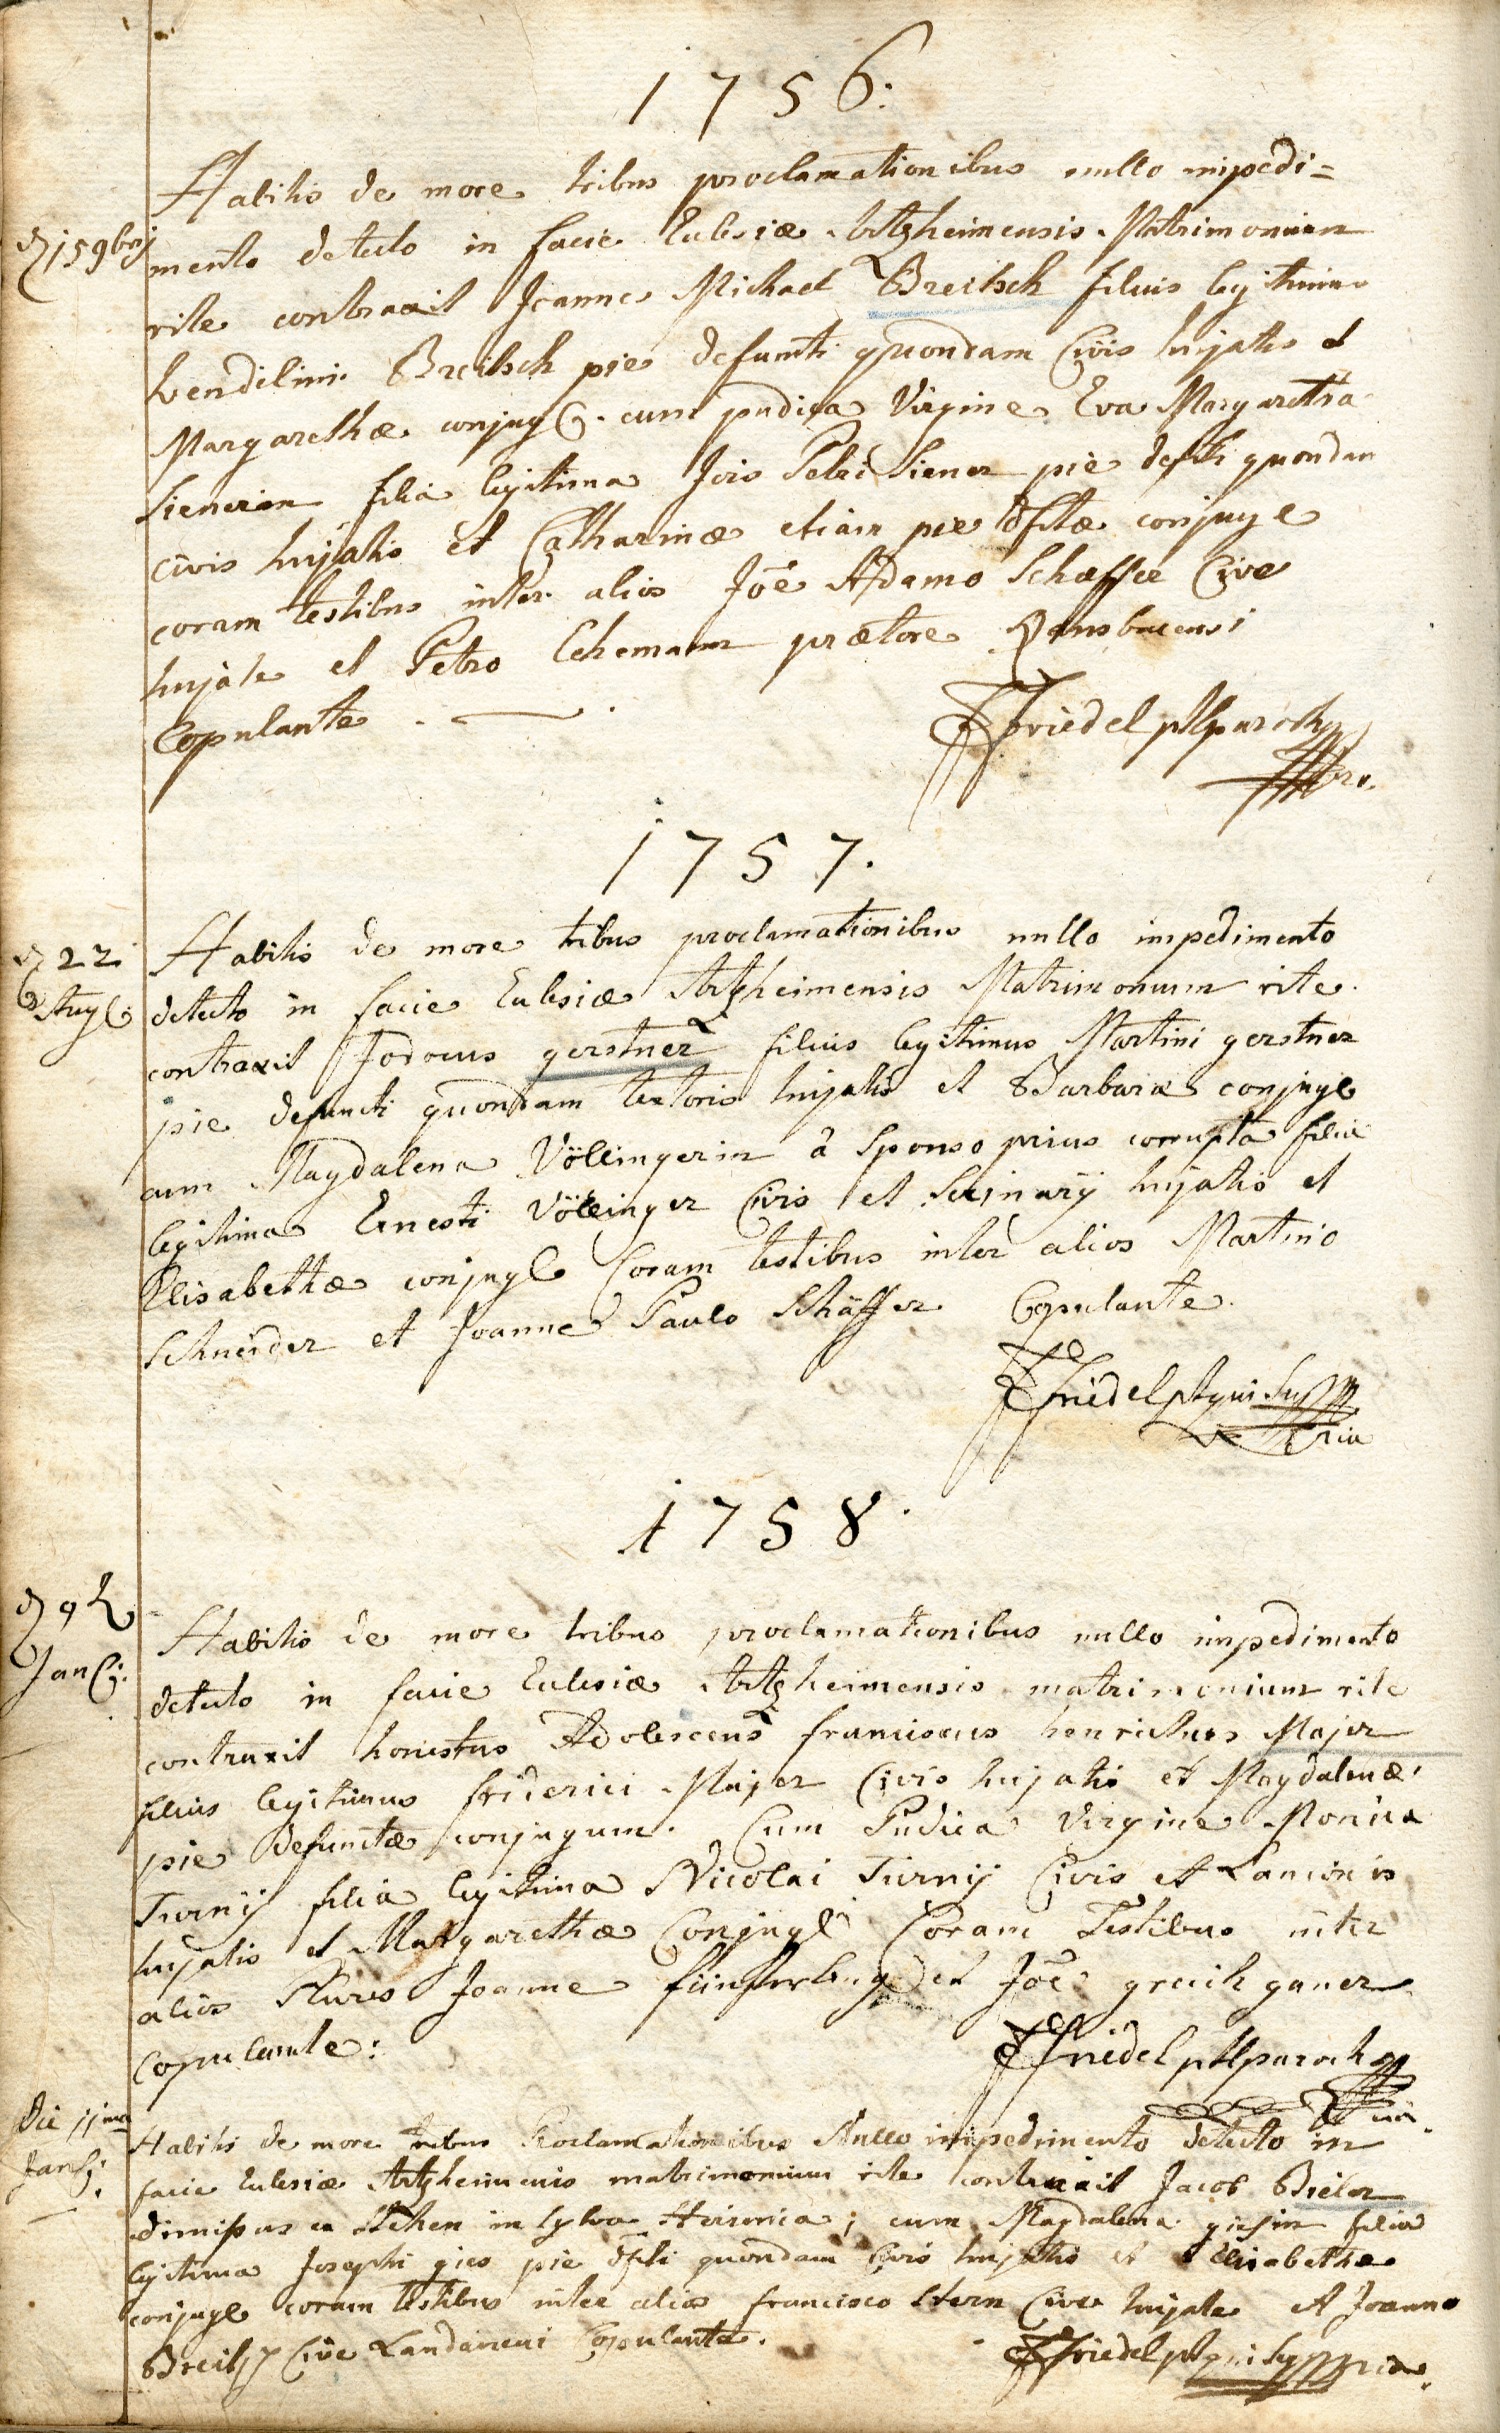 1756.
Habitis de more tribus proclamationibus nullo impedi=
d 15 9brj
mento detecto in facie Ecclesiæ Artzheimensis Matrimonium
rite contraxit Joannes Michael Breitsch filius legitimus
Wendelini Breitsch pie defuncti quondam Civis hujatis et
Margarethæ conjug. cum pudica Virgine Eva Margaretha
Sienerin filia legitima Jois Petri Siener pie defti quondam
civis hujatis et Catharinæ etiam pie dftæ conjuge
coram testibus inter alios Jōe Adamo Schæffer Cive
hujate et Petro Lehemann prætore
Copulante.
Friedel p.t. paroch
1757.
d 22
Aug
Habitis de more tribus proclamationibus nullo impedimento
detecto in facie Ecclesiæ Artzheimensis Matrimonium rite
contraxit Jodocus gerstner filius legitimus Martini gerstner
pie defuncti quondam textoris hujatis et Barbaræ conjuge
cum Magdalena Völlingerin â sponso prius corrupta filia
legitima Ernesti Völlinger Civis et Scrinarij hujatis et
Elisabethæ conjuge Coram testibus inter alios Martino
Schneider et Joanne Paulo Schäffer Copulante.
Friedel
1758.
d 9
Jan
Habitis de more tribus proclamationibus nullo impedimento
detecto in facie Ecclesiæ Artzheimensis matrimonium rite
contraxit honestus Adolescens franciscus henricus Majer
filius legitimus friderici Majer Civis hujatis et Magdalenæ
pie defunctæ conjugum. Cum Pudica Virgine Monica
Turnij filia legitima Nicolai Turnij Civis et Lanionis
hujatis et Margarethæ Conjuge Coram Testibus inter
alios Plures Joanne et Jōe
Copulante:
Friedel p.t. paroch
Die 11ma
Jan
Habitis de more tribus Proclamationibus Nullo impedimento detecto in
facie Ecclesiæ Artzheimensis matrimonium rite contraxit Jacob Bieler
dimissus ex in sylva Hercinica; cum Magdalena giesin filia
legitima Josephi gies pie dfti quondam Civis hujatis et Elisabethæ
conjuge coram testibus inter alios francisco Stern Cive hujate et Joanne
Breitsch Cive Landaviensi Copulante.
Friedel